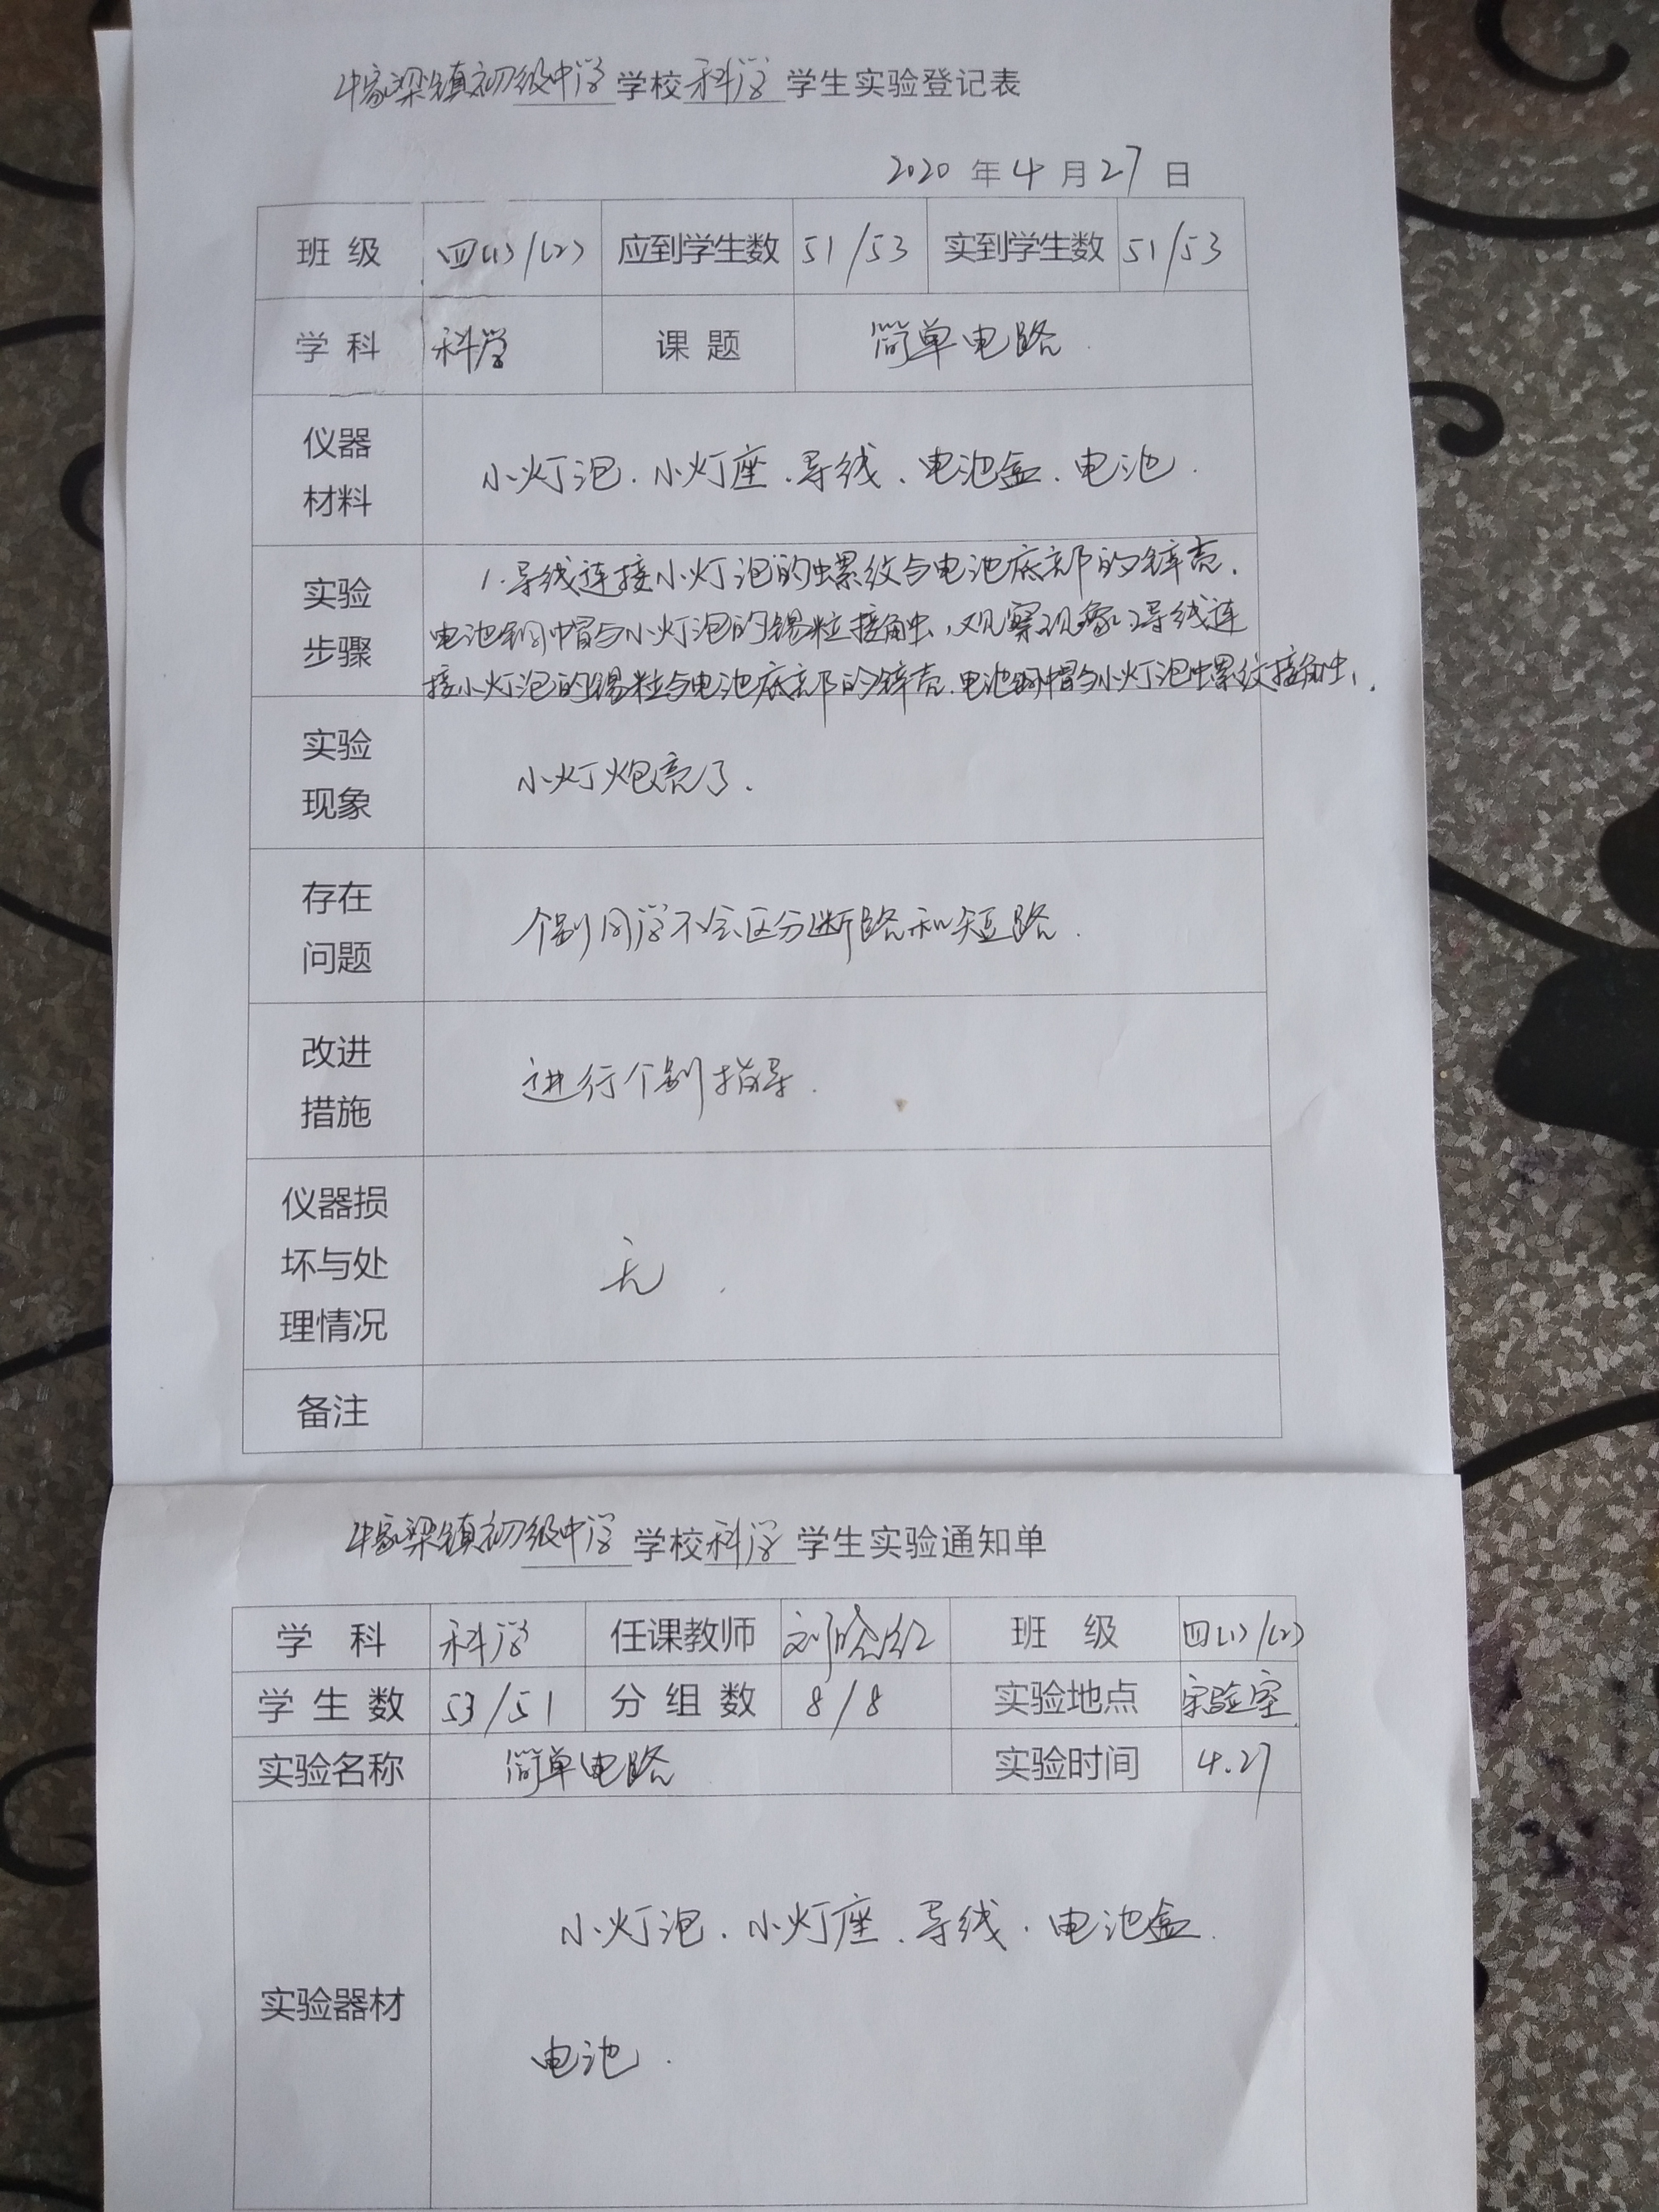 牛家梁镇初级中学学校科学学生实验登记表
2020 年 4 月 27 日
班 级 四(1)/(2) 应到学生数 51/53 实到学生数 51/53
学 科 科学 课 题 简单电路
仪器
材料
小灯泡、小灯座、导线、电池盒、电池.
实验
步骤
1.导线连接小灯泡的螺纹与电池底部的锌壳.
电池铜帽与小灯泡的锡粒接触,观察现象2导线连
接小灯泡的锡粒与电池底部的锌壳.电池铜帽与小灯泡螺纹接触.
实验
现象
小灯炮亮了.
存在
问题
个别同学不会区分断路和短路.
改进
措施
进行个别指导.
仪器损
坏与处
理情况
无
备注
牛家梁镇初级中学学校科学学生实验通知单
学 科 科学 任课教师 刘 班 级 四(1)/(2)
学 生 数 53/51 分 组 数 8/8 实验地点 实验室
实验名称 简单电路 实验时间 4.27
实验器材
小灯泡、小灯座、导线、电池盒.
电池.